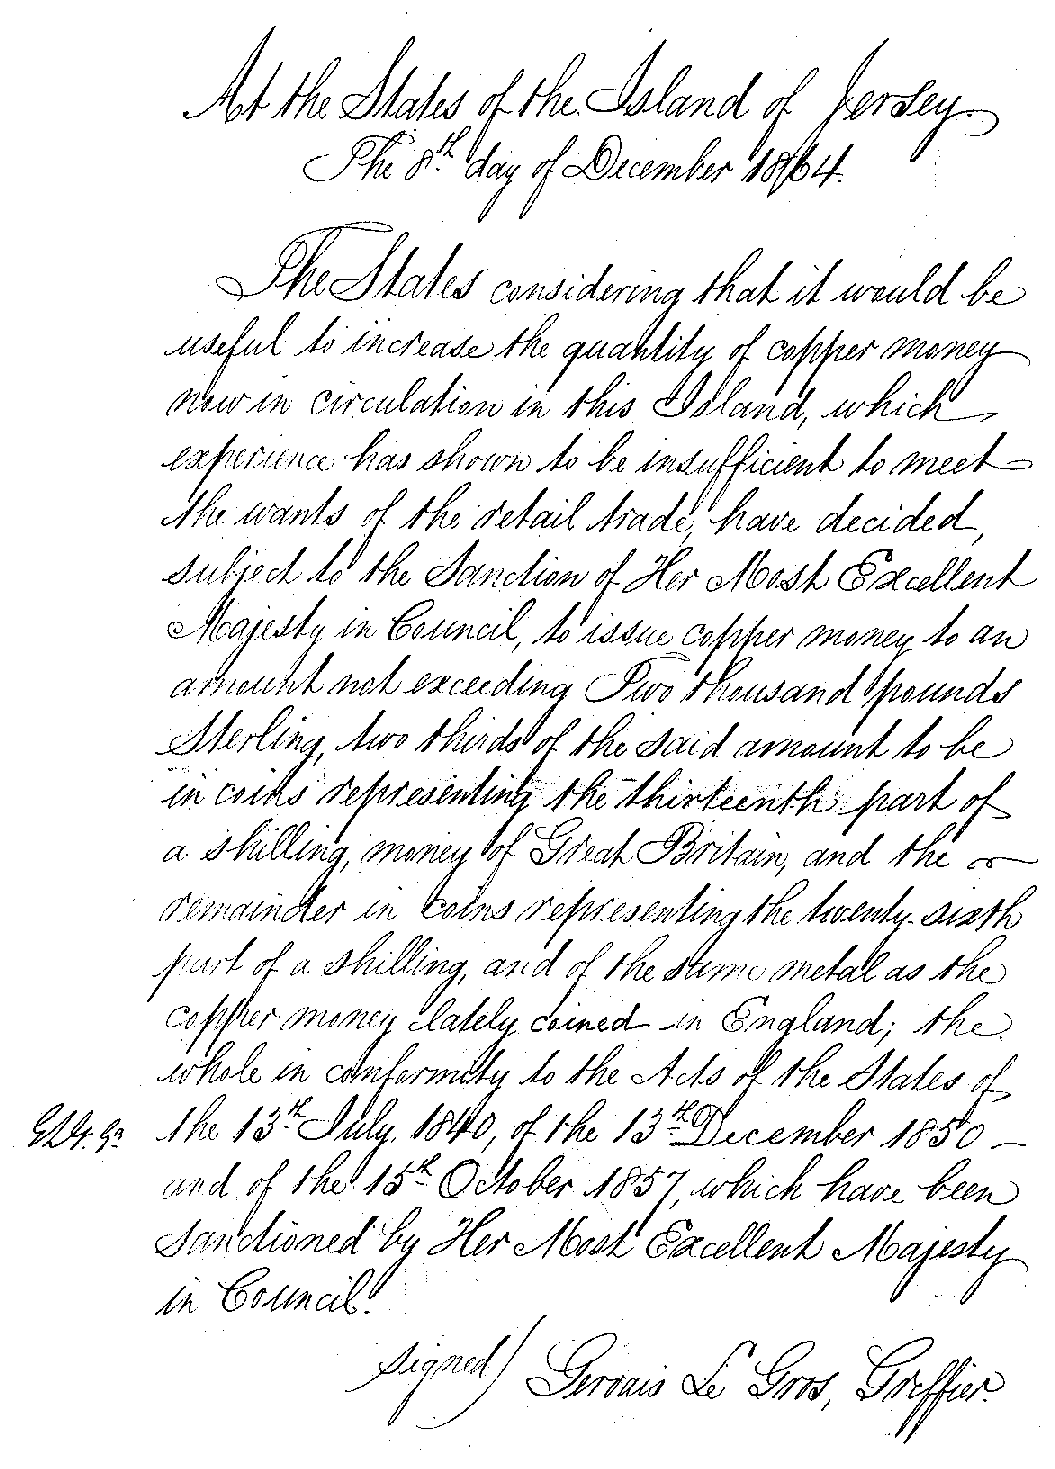 At the States of the Island of Jersey
The 8th day of December 1864.
The States considering that it would be
useful to increase the quantity of copper money
now in circulation in this Island, which
experience has shown to be insufficient to meet
the wants of the retail trade, have decided,
subject to the Sanction of Her Most Excellent
Majesty in Council, to issue copper money to an
amount not exceeding Two thousand pounds
Sterling, two thirds of the said amount to be
in coins representing the thirteenth part of
a shilling, money of Great Britain, and the
remainder in coins representing the twenty-sixth
part of a shilling, and of the same metal as the
copper money lately coined in England; the
whole in conformity to the Acts of the States of
the 13th July, 1840, of the 13th December 1850 –
and of the 15th October 1857, which have been
sanctioned by Her Most Excellent Majesty
in Council.
signed) Gervais Le Gros, Greffier.